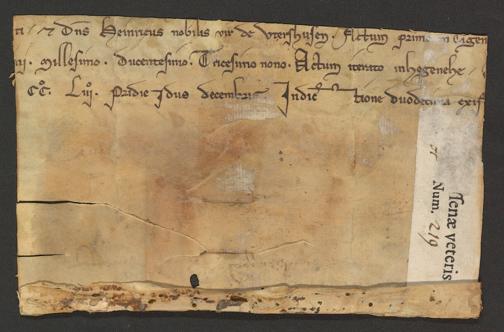 Dns Heinricus nobilis vir de Vtershusen. Actum primo in
millesimo. Ducentesimo. Tricesimo nono. Actum iterato in
CC. Lii. Pridie Idus decembris Indic tione duodecima exis
Ienæ veteris
Num. 219